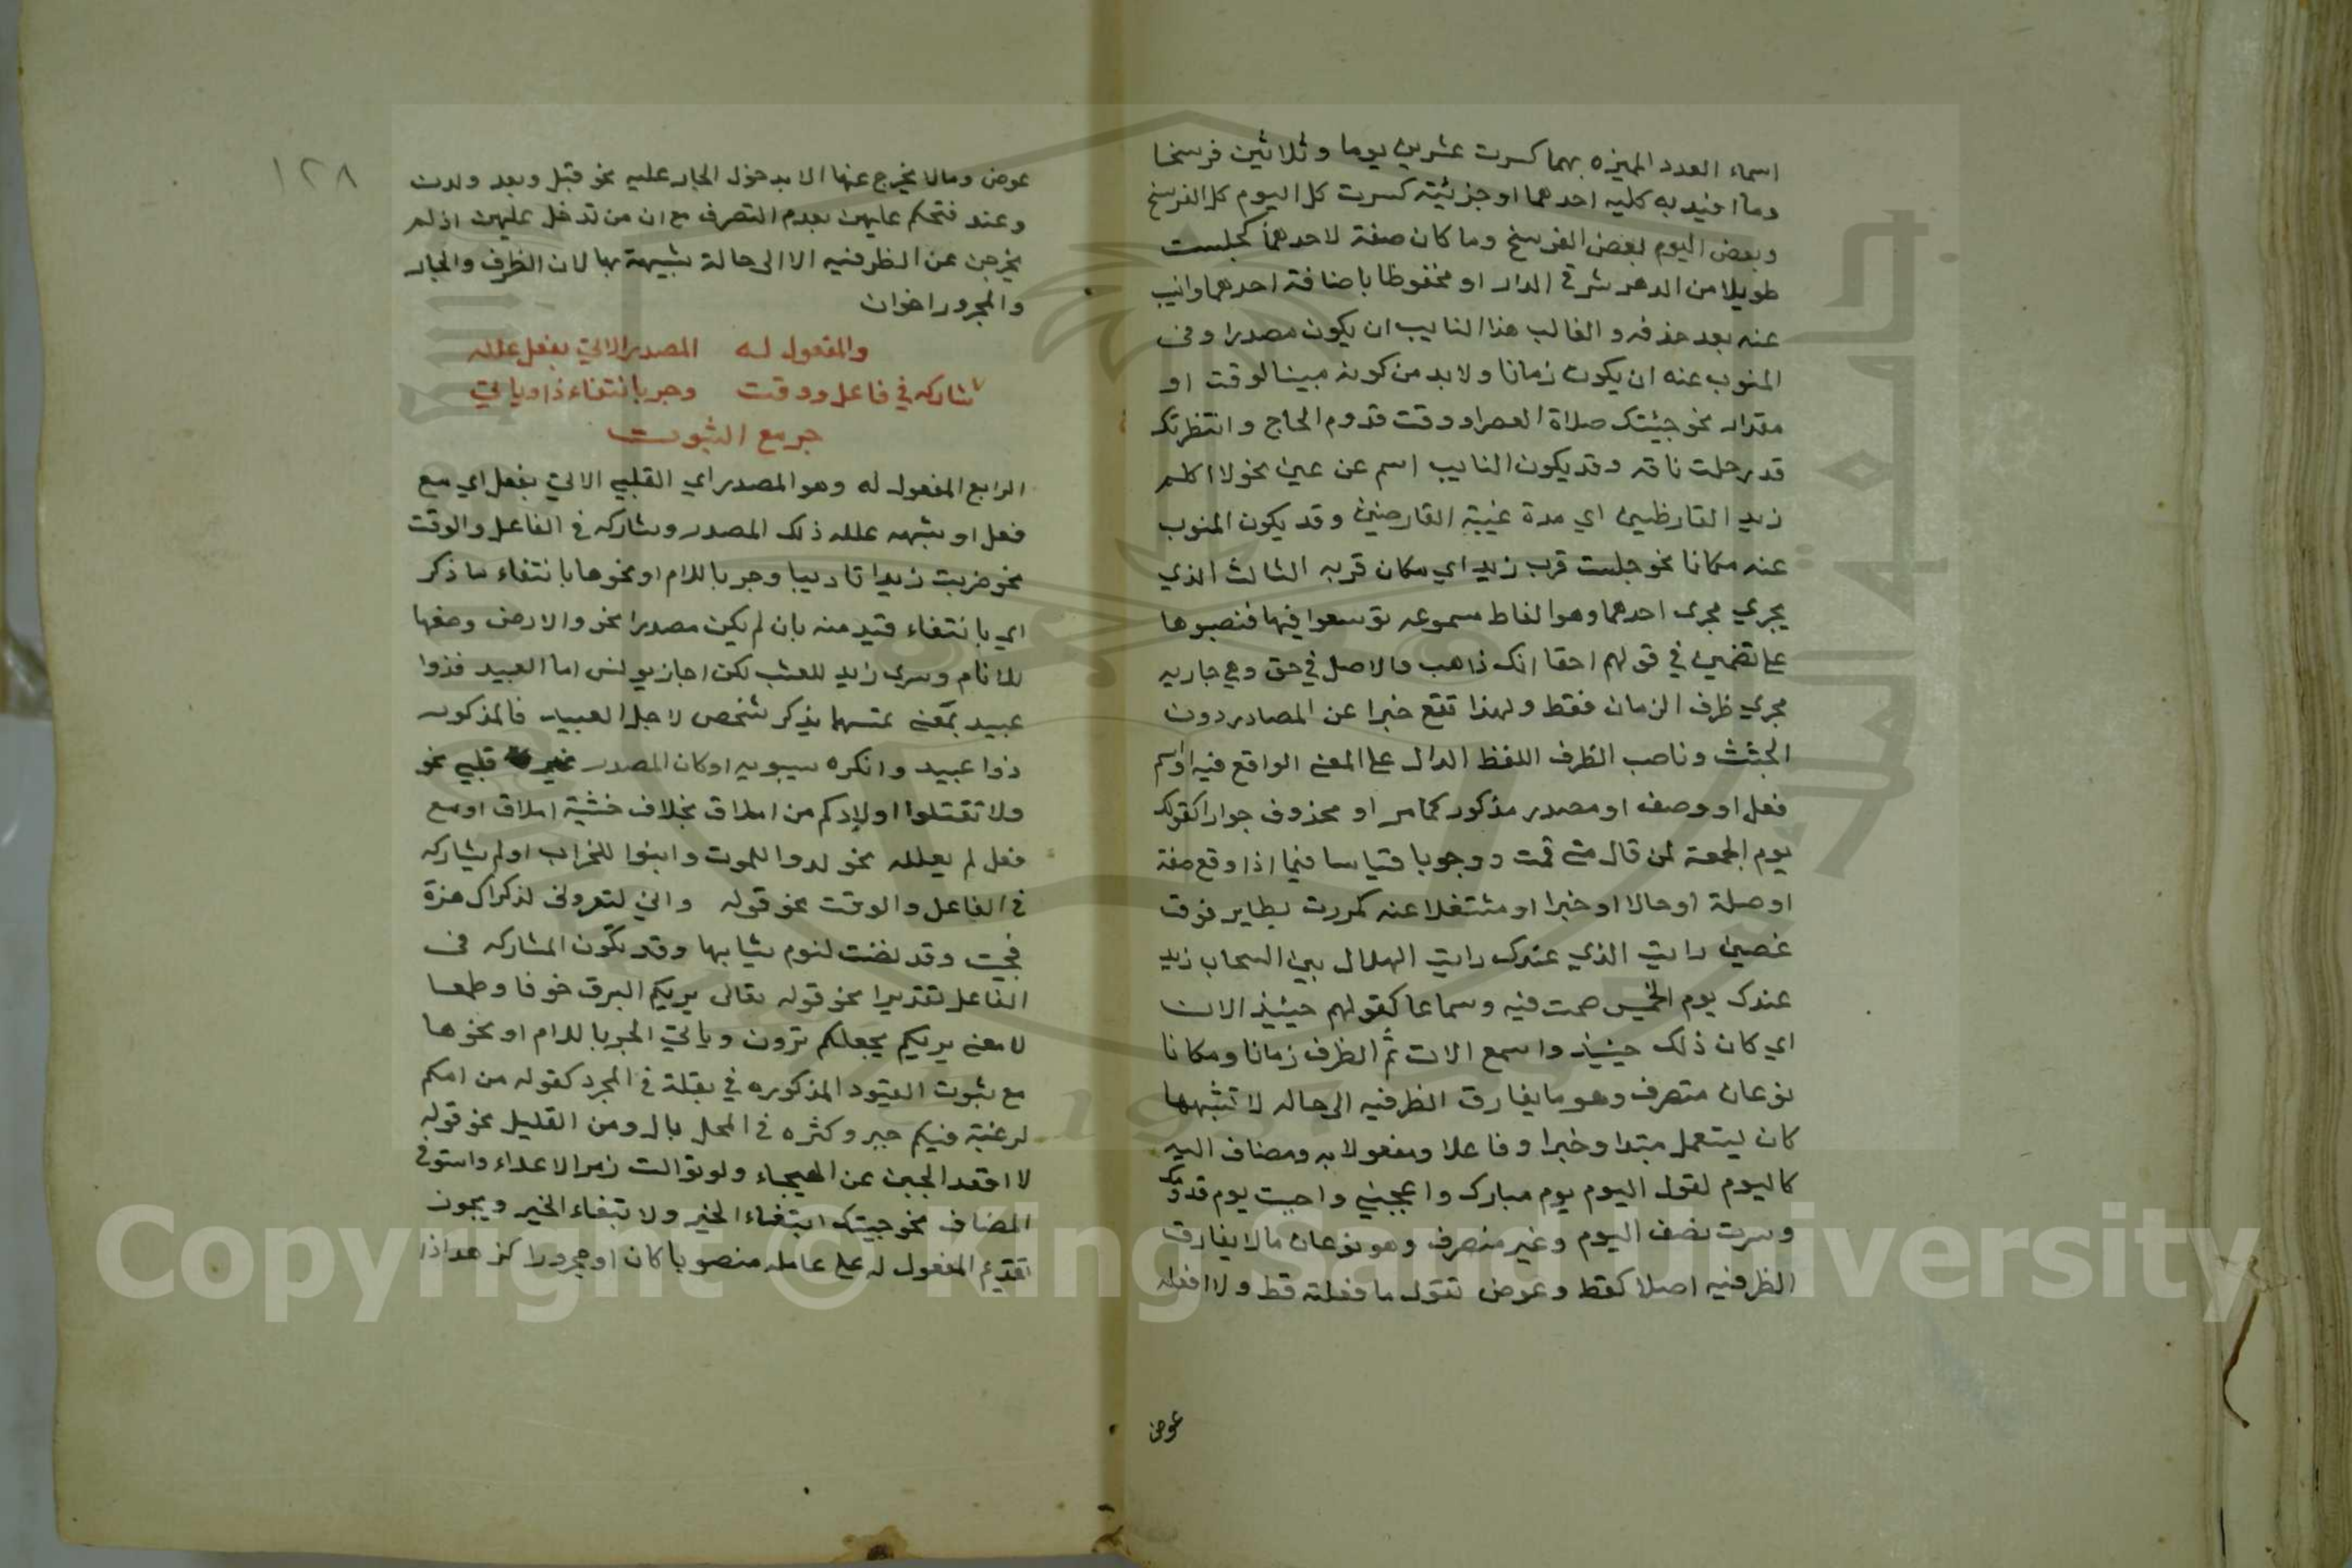 اسماء العدد المميزه بهما كسرت عشرين يوما وثلاثين فرسخا
وما افيد به كليه احدهما او جزئيته كسرت كل اليوم كل الفرسخ
وبعض اليوم بعض الفرسخ وما كان صفة لاحدهما كجلست
طويلا من الدهر شرقي الدار او مخفوظا باضافة احدهما وانيب
عنه بعد حذفه والغالب هذا النايب ان يكون مصدرا وفى
المنوب عنه ان يكون زمانا ولا بد من كونه مبينا لوقت او
مقدار نحو جيئتك صلاة العصر او وقت قدوم الحاج وانتظرتك
قد رحلت ناقه وقد يكون النايب اسم عن عين نحو لا اكلم
زيد القارظين اي مدة غيبة القارضين وقد يكون المنوب
عنه مكانا نحو جلست قرب زيد اي مكان قربه الثالث الذي
يجري مجرى احدهما وهو الفاط مسموعه توسعوا فيها فنصبوها
على تضمين في قولهم احقا انك ذاهب والاصل في حق وهي جاريه
مجري ظرف الزمان فقط ولهذا تقع خبرا عن المصادر دون
الجثث وناصب الظرف اللفظ الدال على المعني الواقع فيه او اسم
فعل او وصف او مصدر مذكور كما مر او محذوف جوازا كقولك
يوم الجمعة لمن قال متى قمت ووجوبا قياسا فيما اذا وقع صفة
او صلة او حالا او خبرا او مشتغلا عنه كمررت بطاير فوق
غصين رايت الذي عندك رايت الهلال بين السحاب زيد
عندك يوم الخميس صمت فيه وسماعا كقولهم حينيذ الان
اي كان ذلك حينيذ واسمع الان ثم الظرف زمانا ومكانا
نوعان متصرف وهو ما يفارق الظرفيه الى حاله لا تشبهها
كان ليتعمل مبتدا وخبرا وفاعلا ومفعولا به ومضاف اليه
كاليوم تقول اليوم يوم مبارك واعجبني واحببت يوم قدومك
وسرت نصف اليوم وغير منصرف وهو نوعان ما لا يفارق
الظرفيه اصلا كقط وعوض تقول ما فعلته قط ولا افعله
عوض
١٢٨
عوض وما لا يخرج عنها الا بدخول الجار عليه نحو قبل وبعد ولدن
وعند فتحكم عليهن بعدم التصرف مع ان من تدخل عليهن اذ لم
يخرجن عن الظرفيه الا الى حالة شبيهة بها لان الظرف والجار
والمجرور اخوان
والمفعول له المصدر الاتي بفعل علله
شاركه في فاعل ووقت وجر بانتفاء ذا وياتي
جر مع الثبوت
الرابع المفعول له وهو المصدر اي القلبي الاتي بفعل اي مع
فعل او شبهه علله ذلك المصدر وشاركه في الفاعل والوقت
نحو ضربت زيدا تاديبا وجر باللام او نحوها بانتفاء ما ذكر
اي بانتفاء قيد منه بان لم يكن مصدرا نحو والارض وضعها
للانام وسري زيد للعشب لكن اجاز يونس اما العبيد فذوا
عبيد بمعني مهما يذكر شخص لاجل العبيد فالمذكور
ذوا عبيد وانكره سيبويه او كان المصدر غير قلبي نحو
ولا تقتلوا اولادكم من املاق بخلاف خشية املاق او مع
فعل لم يعلله نحو لدوا للموت وابنوا للخراب او لم يشاركه
في الفاعل والوقت نحو قوله واني لتعروني لذكراك هزة
فجيت وقد نضت لنوم ثيابها وقد تكون المشاركه فى
الفاعل تقديرا نحو قوله تعالى يريكم البرق خوفا وطمعا
لا معني يريكم يجعلكم ترون وياتي الجر باللام او نحوها
مع ثبوت القيود المذكوره في بقلة في المجرد كقوله من امكم
لرغبة فيكم جبر وكثره في المحل بال ومن القليل نحو قوله
لا اقعد الجبن عن الهيجاء ولو توالت زمر الاعداء واستوي
المضاف نحو جيتك ابتغاء الخير ولابتغاء الخير ويجوز
تقديم المفعول له على عامله منصوبا كان او مجرورا كزهدا ذا
Copyright © King Saud University
1957